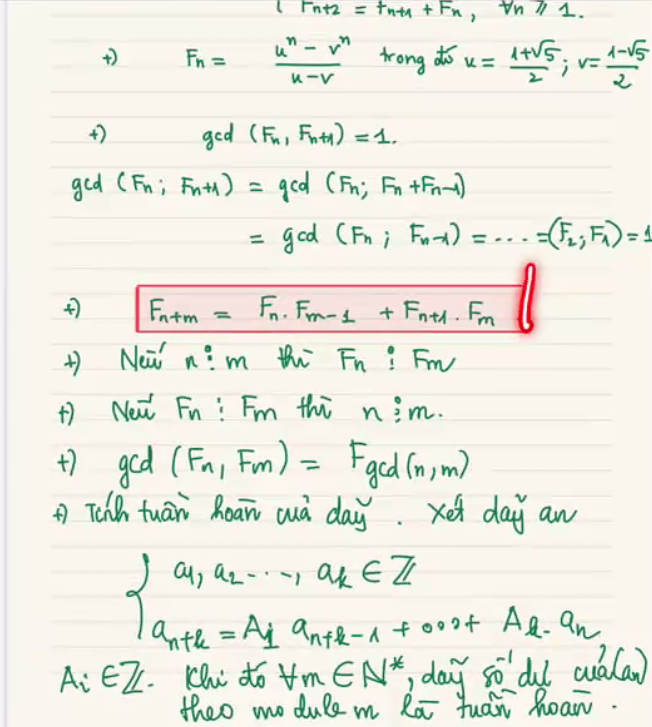 { Fn+2 = Fn+1 + Fn, ∀n ⩾ 1.
+) Fn = (uⁿ - vⁿ)/(u-v) trong đó u = (1+√5)/2 ; v = (1-√5)/2
+) gcd (Fn, Fn+1) = 1.
gcd (Fn ; Fn+1) = gcd (Fn; Fn + Fn-1)
= gcd (Fn ; Fn-1) = .... = (F2; F1) = 1
+) Fn+m = Fn. Fm-1 + Fn+1 . Fm
+) Nếu n ⋮ m thì Fn ⋮ Fm
+) Nếu Fn ⋮ Fm thì n ⋮ m.
+) gcd (Fn, Fm) = Fgcd(n,m)
+) Tính tuần hoàn của dãy . Xét dãy an
{ a1, a2 ..., ak ∈ ℤ
an+k = A1 an+k-1 + ...+ Ak. an
Ai ∈ ℤ. Khi đó ∀m ∈ N*, dãy số dư của (an)
theo modulo m là tuần hoàn .